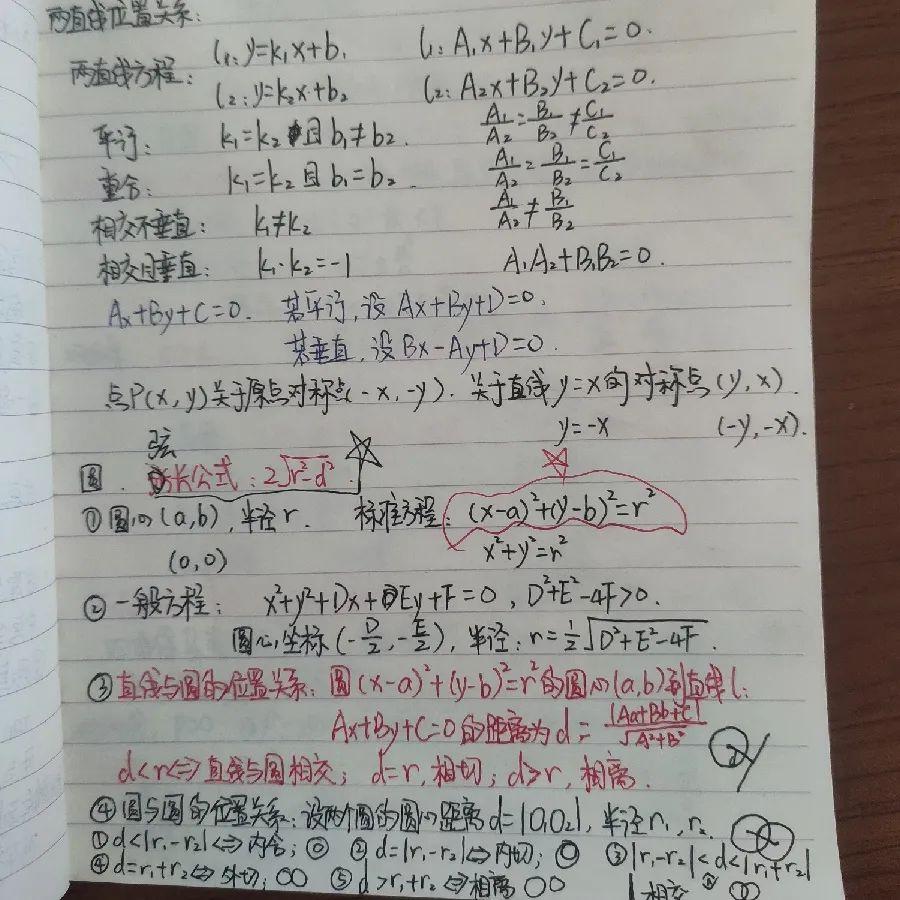 两直线位置关系:
两直线方程: l₁: y=k₁x+b₁ l₁: A₁x+B₁y+C₁=0.
l₂: y=k₂x+b₂ l₂: A₂x+B₂y+C₂=0.
平行: k₁=k₂ 且 b₁≠b₂. A₁/A₂=B₁/B₂≠C₁/C₂
重合: k₁=k₂ 且 b₁=b₂. A₁/A₂=B₁/B₂=C₁/C₂
相交不垂直: k₁≠k₂ A₁/A₂≠B₁/B₂
相交且垂直: k₁·k₂=-1 A₁A₂+B₁B₂=0.
Ax+By+C=0. 某平行, 设 Ax+By+D=0.
某垂直, 设 Bx-Ay+D=0.
点P(x,y)关于原点对称点(-x,-y). 关于直线y=x的对称点(y,x).
y=-x (-y,-x).
弦
圆. 长公式: 2√(r²-d²)
①圆心(a,b), 半径r. 标准方程: (x-a)²+(y-b)²=r²
(0,0) x²+y²=r²
②一般方程: x²+y²+Dx+Ey+F=0, D²+E²-4F>0.
圆心坐标(-D/2,-E/2), 半径: r=½√(D²+E²-4F).
③直线与圆的位置关系: 圆(x-a)²+(y-b)²=r²的圆心(a,b)到直线l:
Ax+By+C=0的距离为d=|Aa+Bb+C|/√(A²+B²)
d<r⇔直线与圆相交; d=r, 相切; d>r, 相离.
④圆与圆的位置关系: 设两个圆的圆心距离d=|O₁O₂|, 半径r₁, r₂.
①d<|r₁-r₂|⇔内含; ②d=|r₁-r₂|⇔内切; ③|r₁-r₂|<d<|r₁+r₂|
④d=r₁+r₂⇔外切; ⑤d>r₁+r₂⇔相离 相交